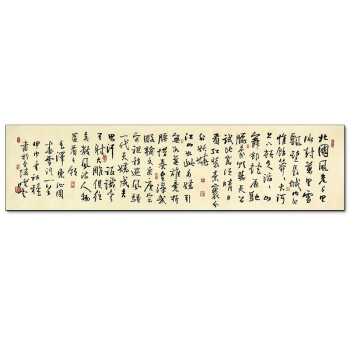 北國風光千里
冰封萬里雪
飄望長城內外
惟餘莽莽大河
上下頓失滔滔山
舞銀蛇原馳
蠟象欲與天公
試比高須晴日
看紅裝素裹分
外妖嬈
江山如此多嬌引
無數英雄競折
腰惜秦皇漢武
略輸文采唐宗
宋祖稍遜風騷
一代天驕成吉
思汗只識彎
弓射大雕俱往
矣數風流人物
還看今朝
毛澤東沁園
春雪詞一首